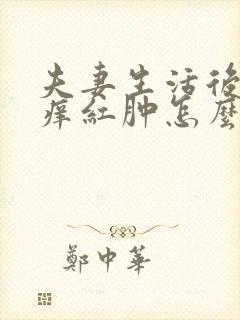 夫妻生活後
痒紅肿怎麼
鄭中華